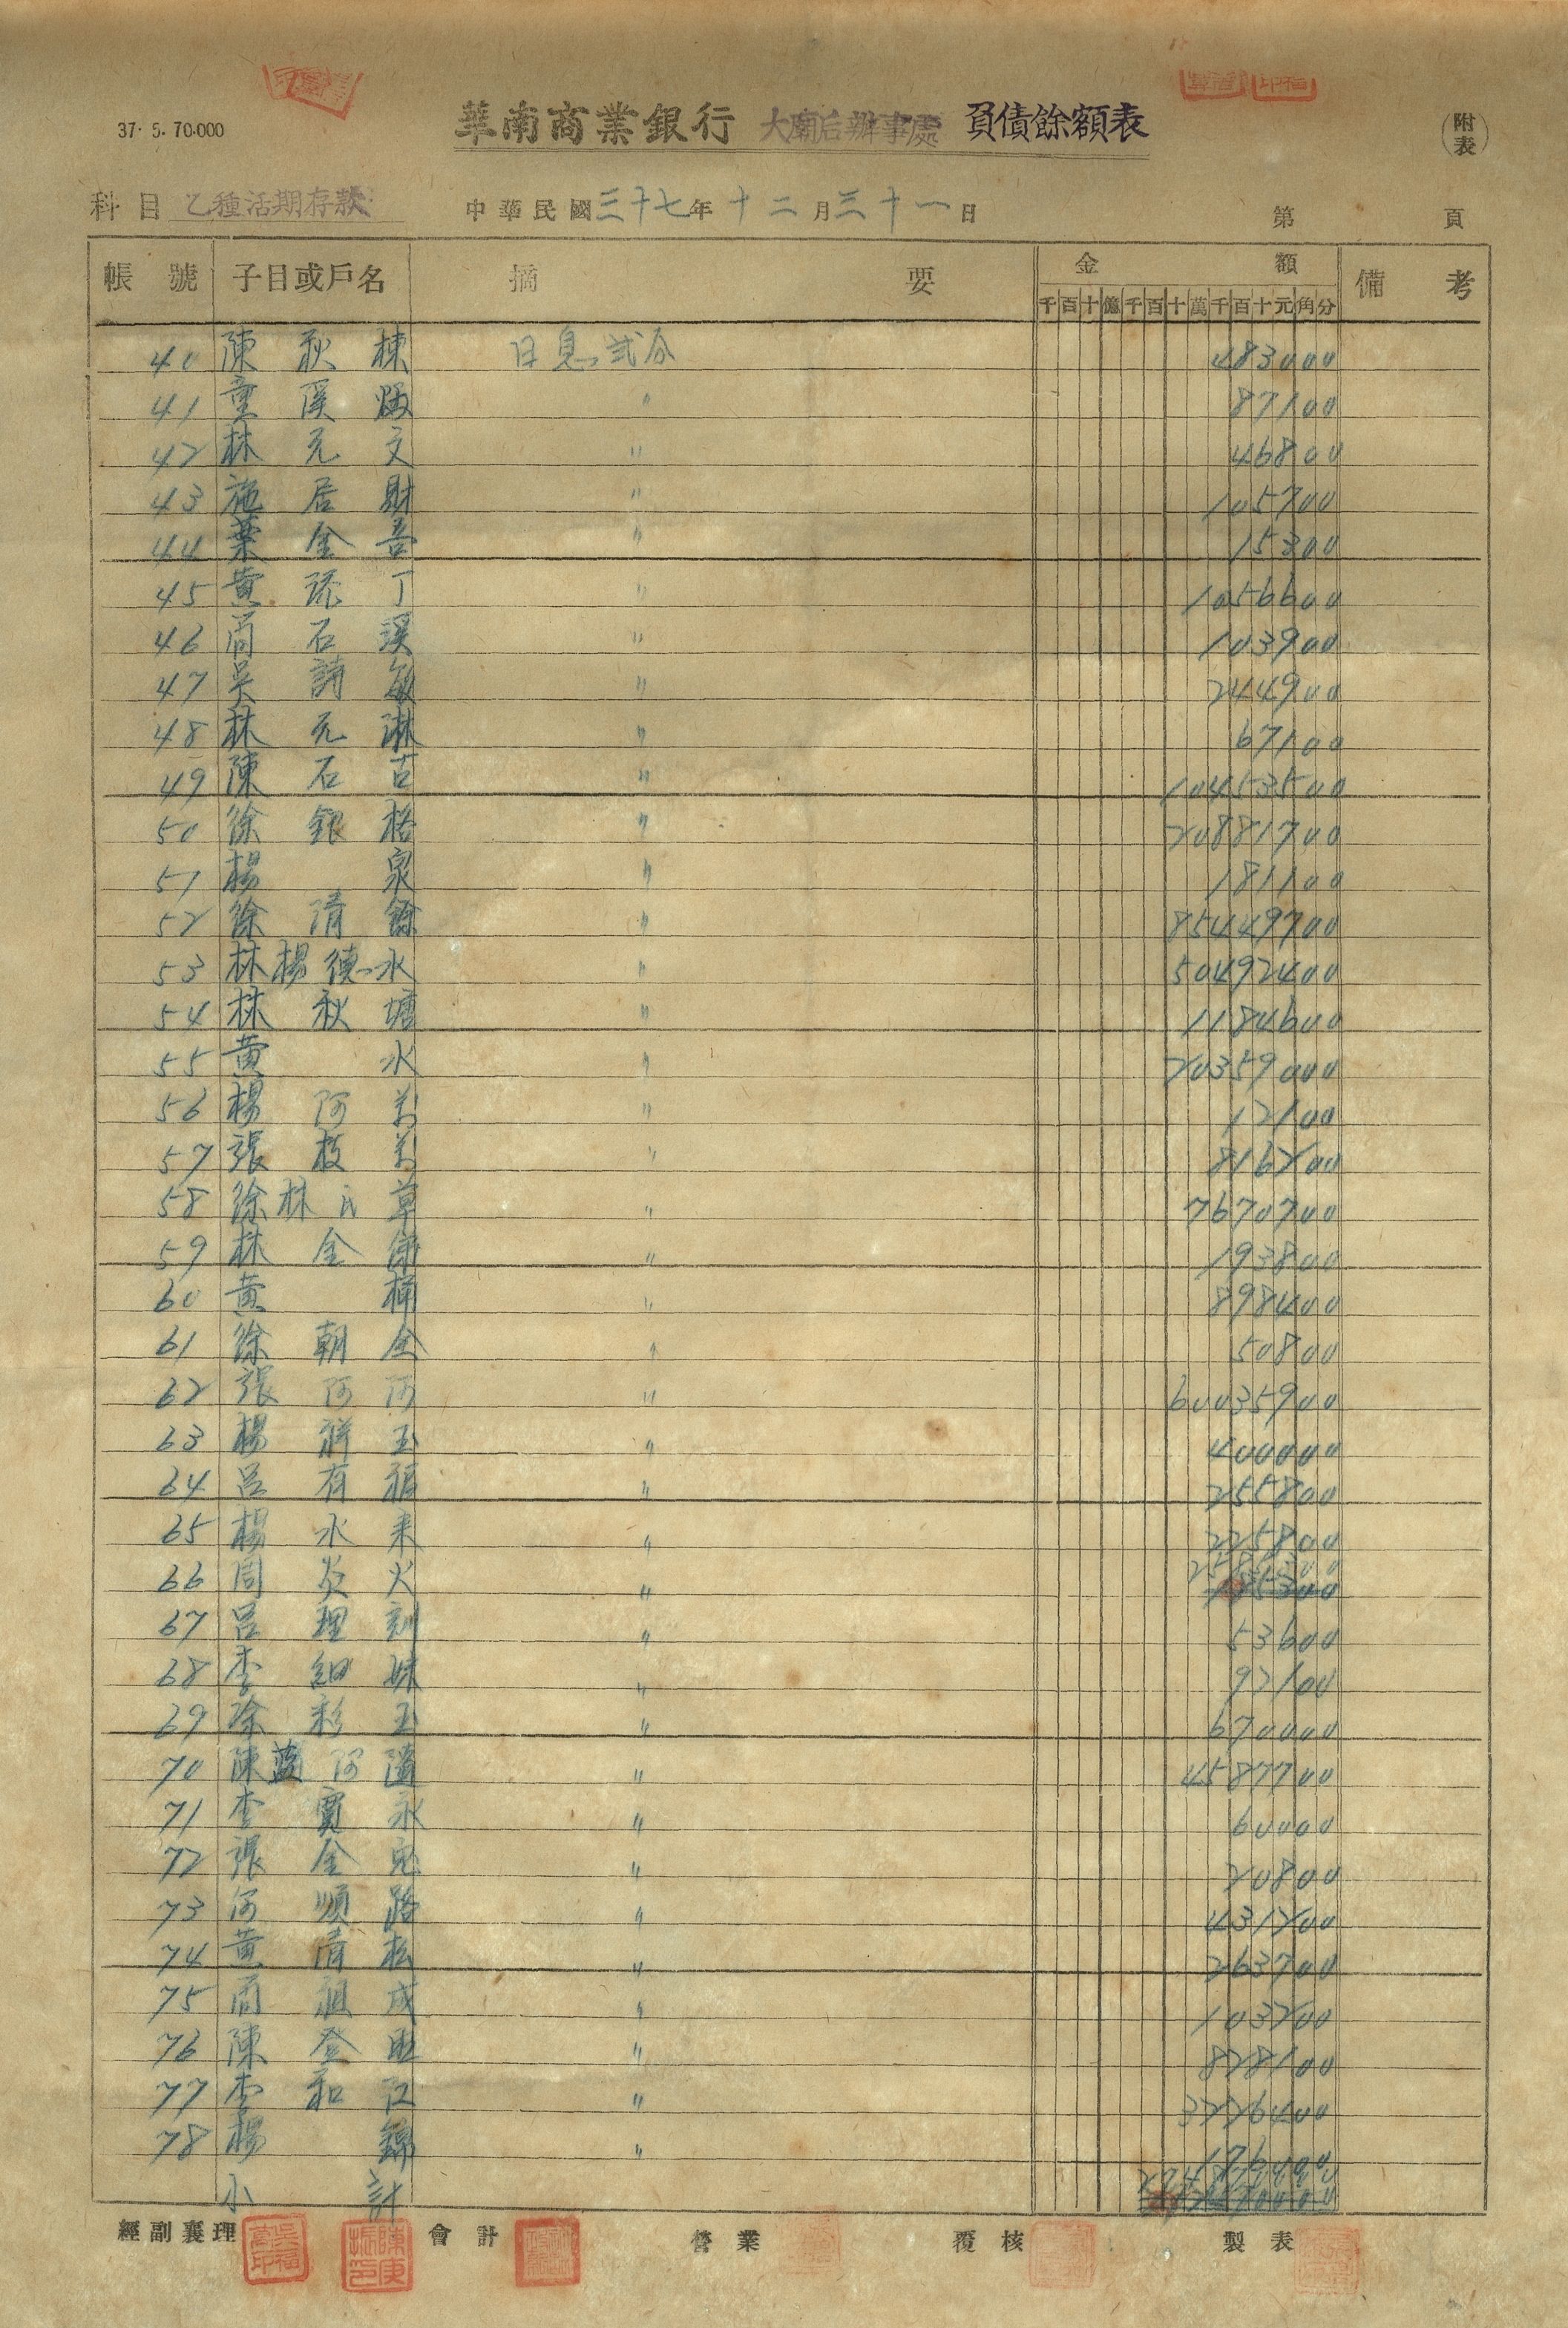 37. 5. 70.000
華南商業銀行 大廟后辦事處 負債餘額表 (附表)
科目 乙種活期存款 中華民國三十七年十二月三十一日 第 頁
帳號 子目或戶名 摘要 金額 備考
千百十億千百十萬千百十元角分
40 陳秋棟 日息弍分 483000
41 童溪 〃 87100
42 林元文 〃 46800
43 施居財 〃 105700
44 葉金吾 〃 15300
45 黃琉丁 〃 1056600
46 简石溪 〃 103900
47 吳詩敏 〃 244900
48 林元淋 〃 67100
49 陳石吉 〃 10453500
50 徐銀格 〃 20881700
51 楊泉 〃 181100
52 徐清餘 〃 85449700
53 林楊德水 〃 50492400
54 林秋塘 〃 1184600
55 黃水 〃 20359000
56 楊阿 〃 12100
57 張枝 〃 816200
58 徐林氏草 〃 7670700
59 林金 〃 193800
60 黃桶 〃 898400
61 徐朝全 〃 50800
62 張阿河 〃 60035900
63 楊祥玉 〃 400000
64 呂有福 〃 255800
65 楊水来 〃 225800
66 周炎火 〃
67 呂理 〃 53600
68 李細妹 〃 92100
69 徐彩玉 〃 670000
70 陳藍阿 〃 4587700
71 李寶永 〃 60000
72 張金兔 〃 20800
73 何順路 〃 431200
74 黃清松 〃 263700
75 简祖成 〃 103200
76 陳登旺 〃 828100
77 李和江 〃 3226400
78 楊錦 〃
小計
經副襄理 會計 營業 覆核 製表